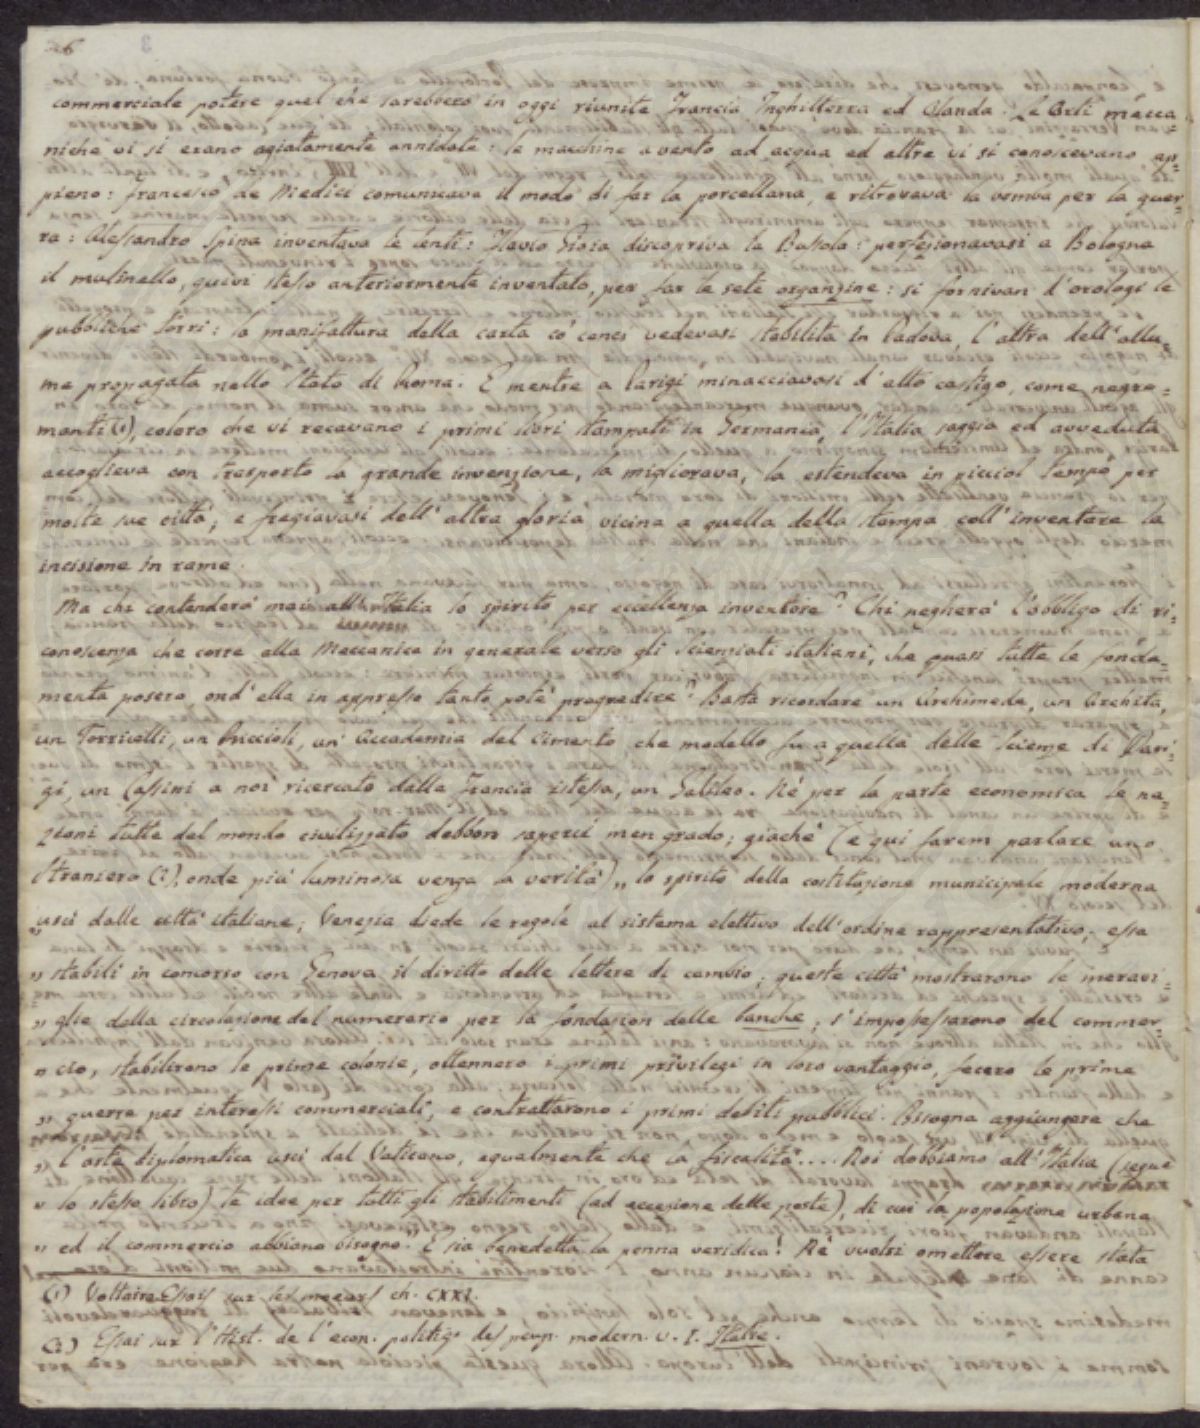 26
commerciale potere quel che sarebbero in oggi riunite Francia Inghilterra ed Olanda. Le Arti mecca=
niche vi si erano agiatamente annidate: le macchine a vento ad acqua ed altre vi si conoscevano ap=
pieno: Francesco de Medici comunicava il modo di far la porcellana, e ritrovava la bomba per la guer=
ra: Alessandro Spina inventava le lenti: Flavio Gioia discopriva la Bussola: perfezionavasi a Bologna
il mulinello, quivi stesso anteriormente inventato, per far le sete organzine: si fornivan d'orologi le
pubbliche torri: la manifattura della carta co' cenci vedevasi stabilita in Padova, l'altra dell'allu=
me propagata nello Stato di Roma. E mentre a Parigi minacciavasi d'alto castigo, come negro=
manti (1), coloro che vi recavano i primi libri stampati in Germania, l'Italia saggia ed avveduta
accoglieva con trasporto la grande invenzione, la migliorava, la estendeva in picciol tempo per
molte sue città; e fregiavasi dell'altra gloria vicina a quella della stampa coll'inventare la
incisione in rame.
Ma chi contenderà mai all'Italia lo spirito per eccellenza inventore? Chi negherà l'obbligo di ri=
conoscenza che corre alla Meccanica in generale verso gli scienziati italiani, che quasi tutte le fonda=
menta posero, ond'ella in appresso tanto potè progredire? Basta ricordare un Archimede, un Archita,
un Torricelli, un Riccioli, un' Accademia del Cimento che modello fu a quella delle Scienze di Pari=
gi, un Cassini a noi ricercato dalla Francia istessa, un Galileo. Nè per la parte economica le na=
zioni tutte del mondo civilizzato debbon saperci men grado; giachè (e qui farem parlare uno
straniero (2), onde più luminosa venga la verità) „ lo spirito della costituzione municipale moderna
„ uscì dalle città italiane; Venezia diede le regole al sistema elettivo dell'ordine rappresentativo; essa
„ stabilì in concorso con Genova il diritto delle lettere di cambio; queste città mostrarono le meravi=
„ glie della circolazione del numerario per la fondazion delle banche; s'impossessarono del commer=
„ cio, stabilirono le prime colonie, ottennero i primi privilegi in loro vantaggio, fecero le prime
„ guerre per interessi commerciali, e contrattarono i primi debiti pubblici. Bisogna aggiungere che
„ l'arte diplomatica uscì dal Vaticano, egualmente che la fiscalità.... Noi dobbiamo all'Italia (segue
„ lo stesso libro) le idee per tutti gli stabilimenti (ad eccezione delle poste), di cui la popolazione urbana
„ ed il commercio abbiano bisogno." E sia benedetta la penna veridica! Nè vuolsi omettere essere stata
(1) Voltaire Essai sur les moeurs ch. CXXI.
(2) Essai sur l'Hist. de l'econ. politiq. des peup. modern. v. I. Italie.